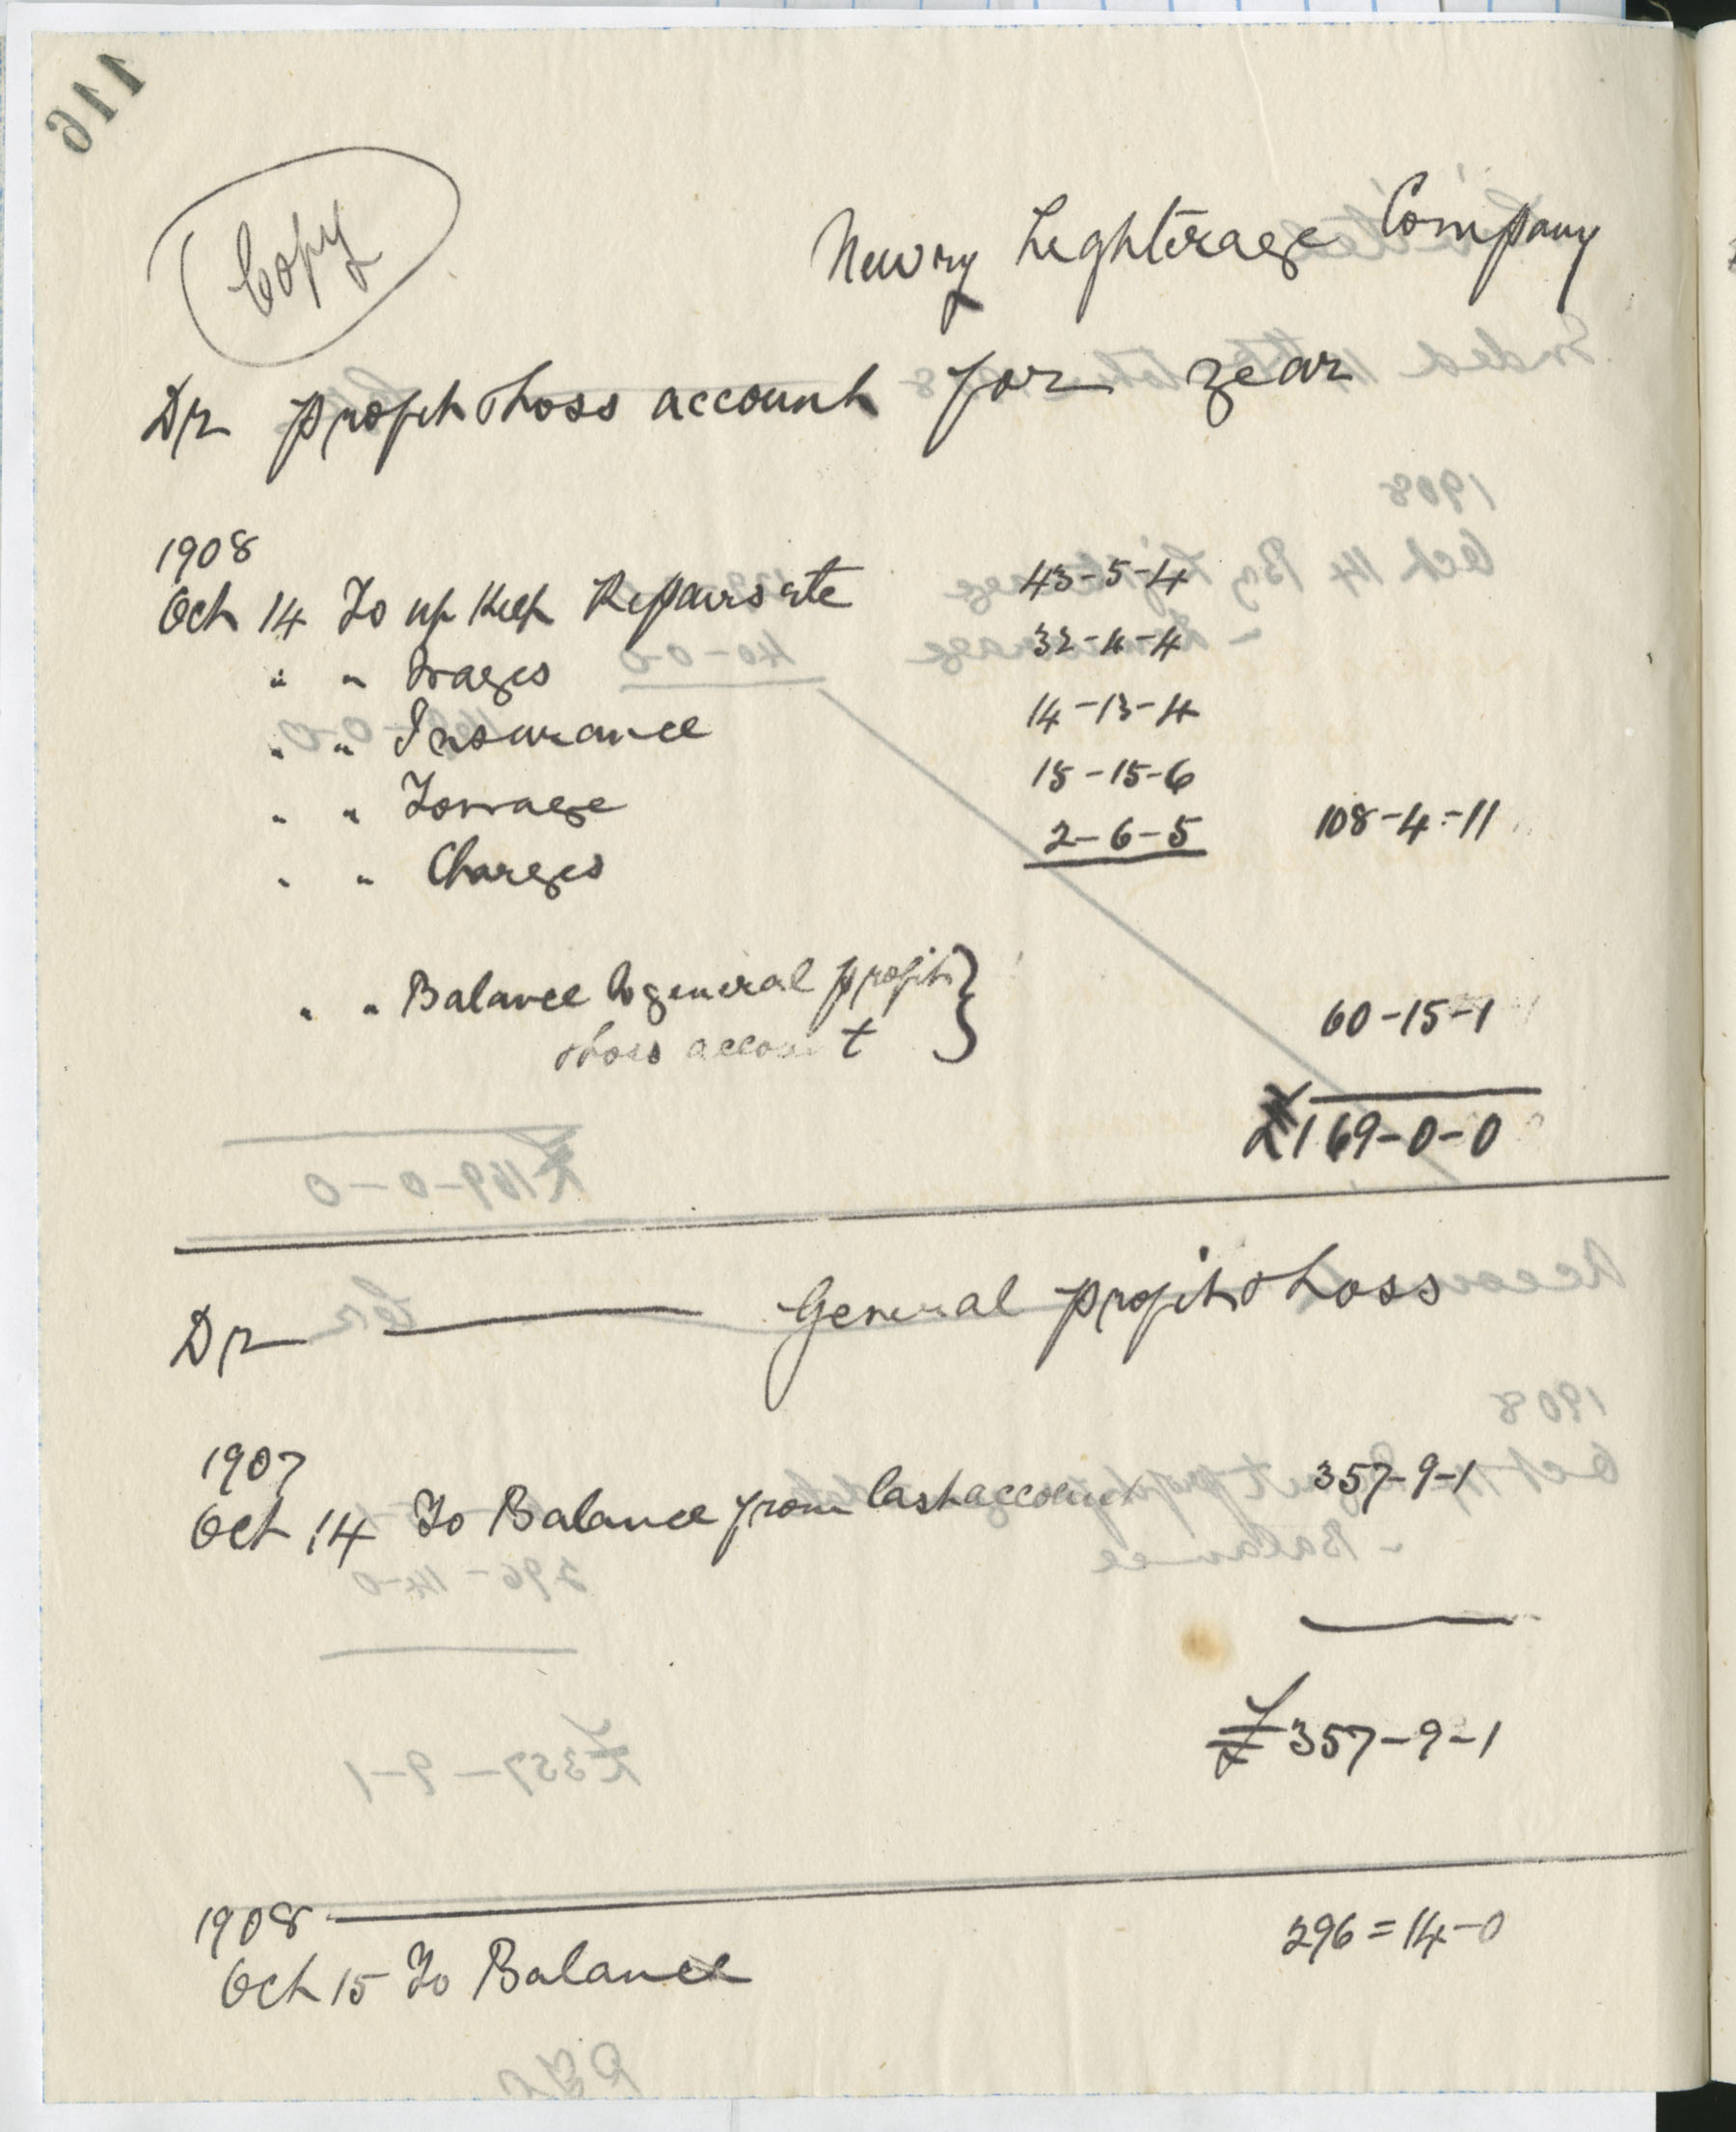 116
Copy
Newry Lighterage Company
Dr profit & Loss account for year
1908
Oct 14 To up Keep Repairs etc 43-5-4
" " Wages 32-4-4
" " Insurance 14-13-4
" " Towage 15-15-6
" " Charges 2-6-5 108-4-11
" " Balance to general profit
& loss account 60-15-1
£169-0-0
Dr General profit & Loss
1907
Oct 14 To Balance from last account 357-9-1
£357-9-1
1908
Oct 15 To Balance 296=14-0